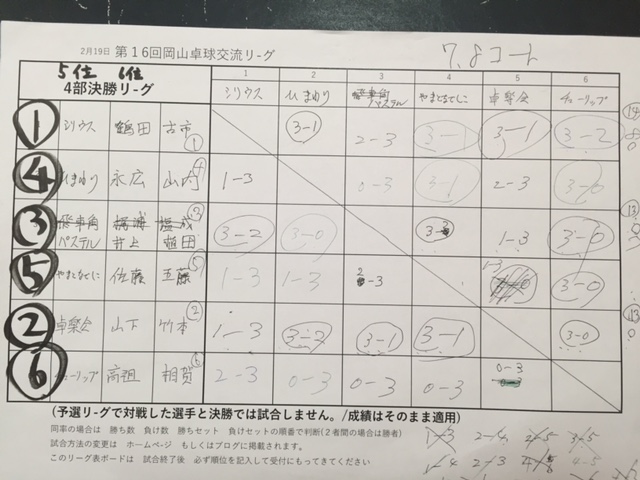 2月19日 第16回岡山卓球交流リーグ 7,8コート
5位 6位
4部決勝リーグ
1 2 3 4 5 6
シリウス ひまわり 飛車角 パステル やまとなでしこ 卓楽会 チューリップ
① シリウス 鶴田 古市 ① 3-1 2-3 3-1 3-1 3-2
④ ひまわり 永広 山内 4 1-3 0-3 3-1 2-3 3-0
③ パステル 井上 植田 ③ 3-2 3-0 1-3 3-0
⑤ やまとなでしこ 佐藤 五藤 ⑤ 1-3 1-3 2-3 1-3 3-0
② 卓楽会 山下 竹本 ② 1-3 3-2 3-1 3-1 3-0
⑥ チューリップ 相賀 ⑥ 2-3 0-3 0-3 0-3 0-3
(予選リーグで対戦した選手と決勝では試合しません。/成績はそのまま適用)
同率の場合は 勝ち数 負け数 勝ちセット 負けセットの順番で判断(2者間の場合は勝者)
試合方法の変更は ホームページ もしくはブログに掲載されます。
このリーグ表ボードは 試合終了後 必ず順位を記入して受付にもってきてください
1-3 2-4 2-5 3-5
1-4 2-3 4-5